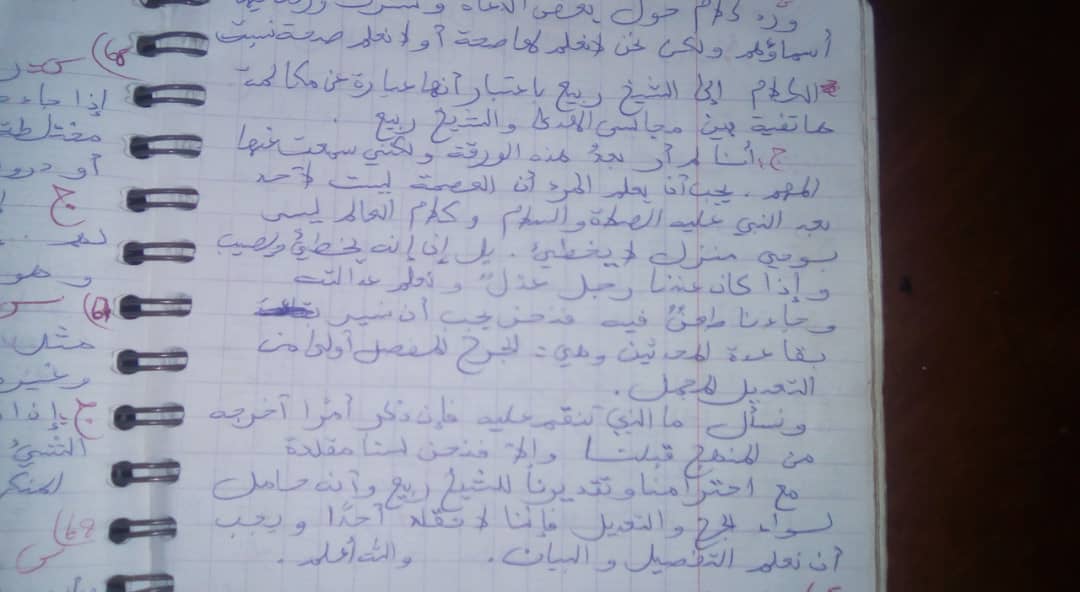 ورد كلام حول بعض الدعاة
أسماؤهم ولكن نحن لا نعلم لها صحة أو لا نعلم صحة نسبت
الكلام إلى الشيخ ربيع باعتبار أنها عبارة عن مكالمة
هاتفية بين مجالس الهدى والشيخ ربيع .
ج، أنا لم أر بعدُ هذه الورقة ولكني سمعت عنها
المهم . يجب أن يعلم المرء أن العصمة ليست لأحد
بعد النبي عليه الصلاة والسلام وكلام العالم ليس
بوحي منزل لا يخطئ . بل إنه يخطئ ويصيب
وإذا كان عندنا رجل عدل ونعلم عدالته
وجاءنا طعنٌ فيه فنحن يجب أن نسير
بقاعدة المحدثين وهي : الجرح المفصل أولى من
التعديل المجمل .
ونسأل ما الذي تنقم عليه فإن ذكر أمرًا أخرجه
من المنهج قبلنا وإلا فنحن لسنا مقلدة
مع احترامنا وتقديرنا للشيخ ربيع وأنه حامل
لواء الجرح والتعديل فإننا لا نقلد أحدًا ويجب
أن نعلم التفصيل والبيان . والله أعلم .
68)
إذا جاء
مختلطة
أو درو
ج
لهم
وهو
س
مثل
وغيره
ج: إذا
الشيء
المنكر
س